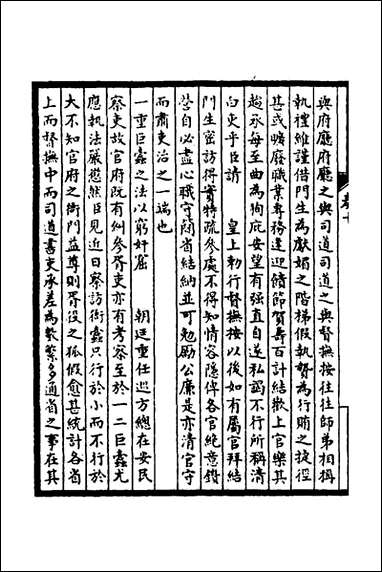 與府廳府廳之與司道司道之與督撫按往往師弟相稱
執禮維謹借門生為獻媚之階梯假執贄為行賄之捷徑
甚或曠廢職業專務逢迎饋節賀壽百計結歡上官樂其
趨承每至曲為狥庇安望有强直自遂私謁不行所稱清
白吏乎臣請 皇上勅行督撫按以後如有屬官拜結
門生密訪得實特疏參處不得知情容隱俾各官絶意鑽
營自必盡心職守簡省結納並可勉勵公廉是亦清官守
而肅吏治之一端也
一重臣蠧之法以窮奸窟 朝廷重任巡方總在安民
察吏故官府既有糾參胥吏亦有考察至於一二巨蠧尤
應執法嚴懲然臣見近日察訪衙蠧只行於小而不行於
大不知官府之衙門益尊則胥役之狐假愈甚統計各省
上而督撫中而司道書吏承差為數繁多通省之事在其